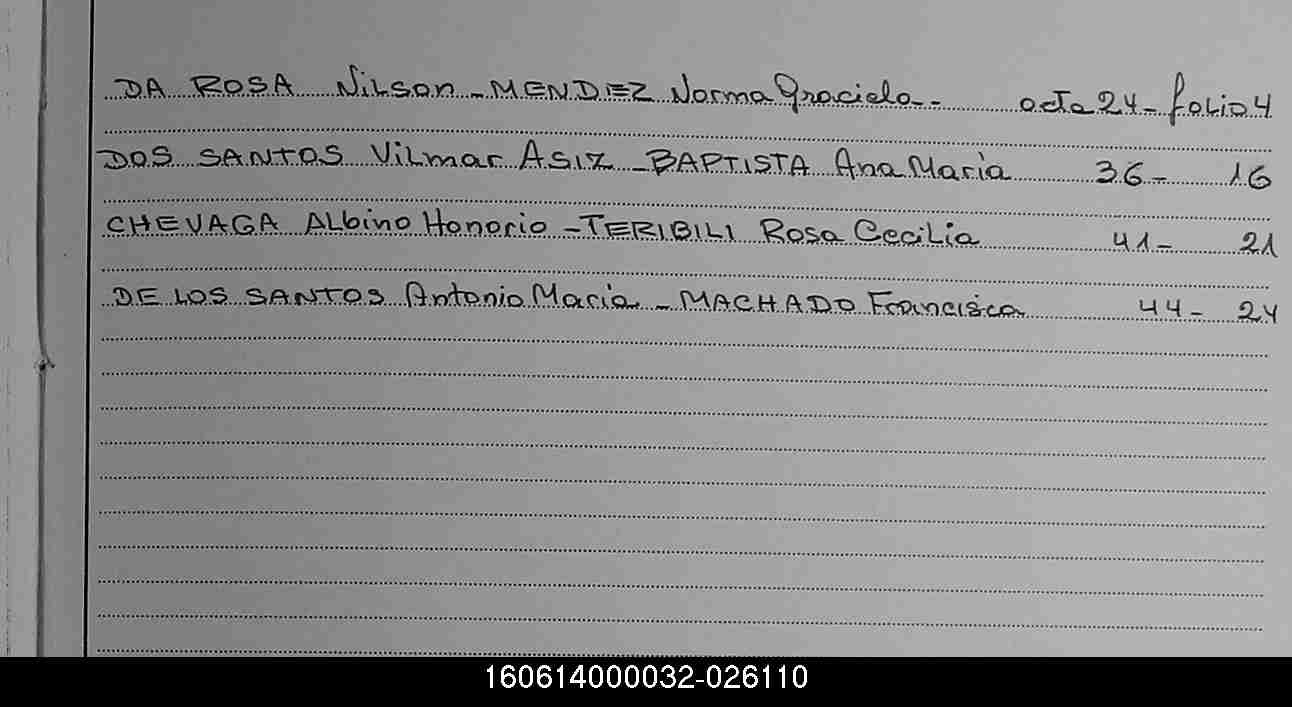 DA ROSA Nilson - MENDIEZ Norma Graciela - acta 24 - folio 4
DOS SANTOS Vilmar ASIZ - BAPTISTA Ana María 36 - 16
CHEVAGA Albino Honorio - TERIBILI Rosa Cecilia 41 - 21
DE LOS SANTOS Antonio María - MACHADO Francisca 44 - 24
160614000032-026110